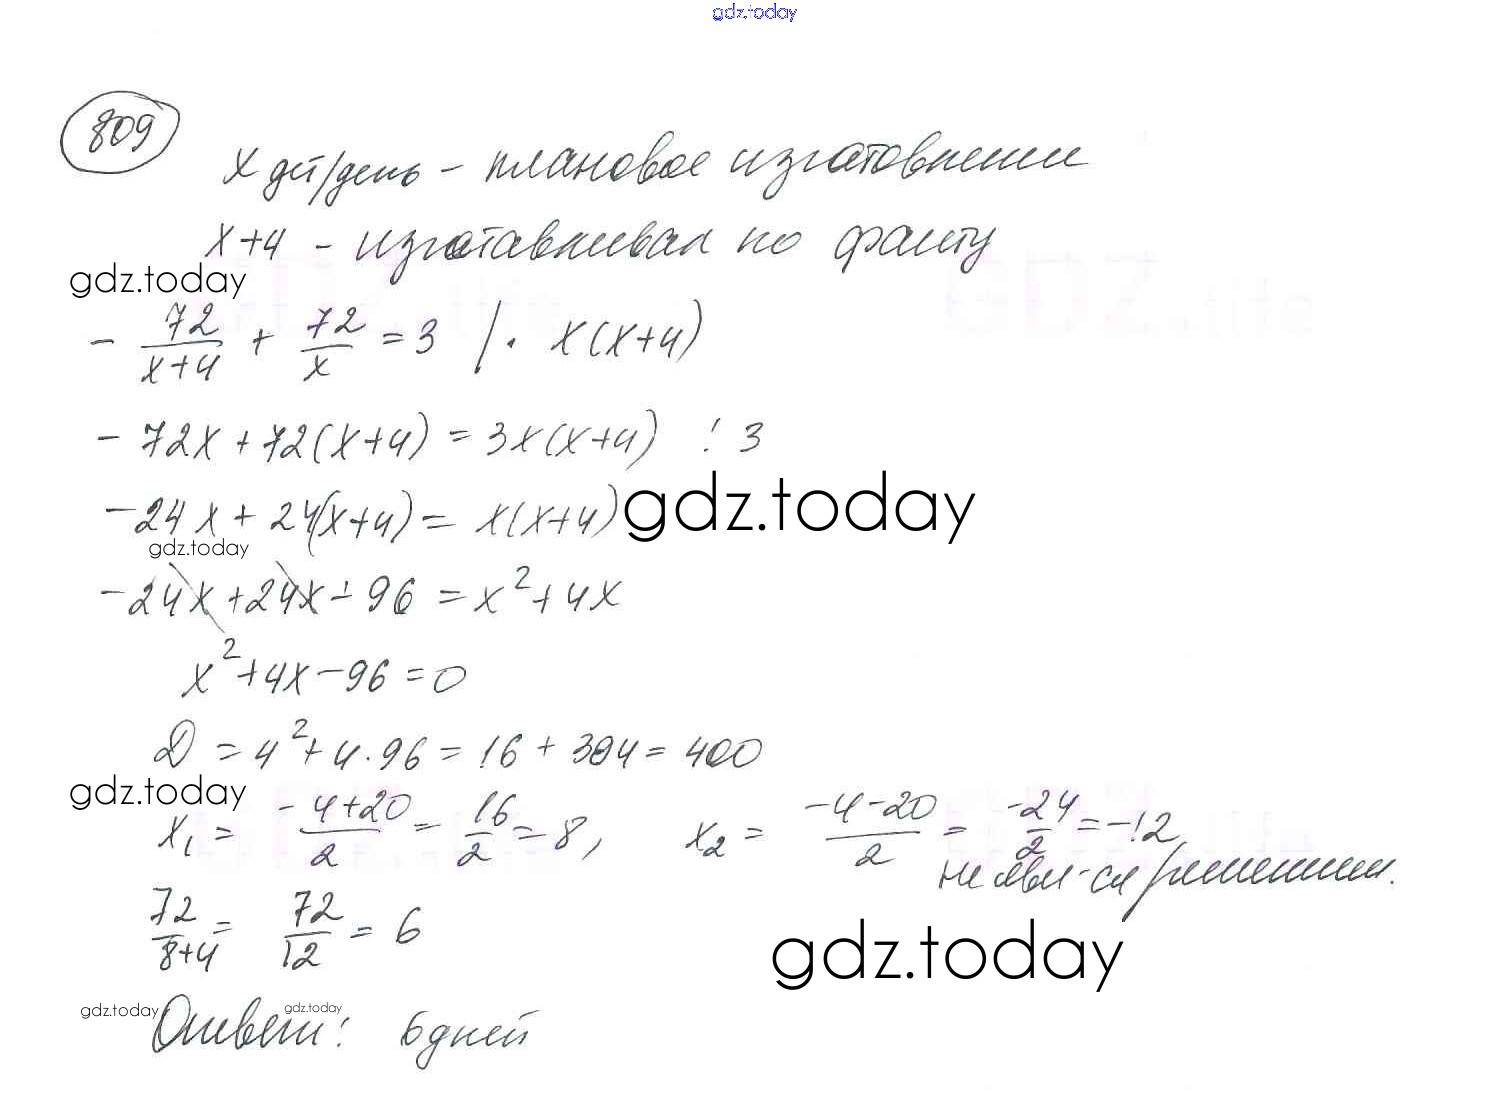 gdz.today
809
x дет/день - плановое изготовлении
x+4 - изготавливал по факту
gdz.today
- 72/(x+4) + 72/x = 3 | · x(x+4)
- 72x + 72(x+4) = 3x(x+4) : 3
-24x + 24(x+4) = x(x+4)
gdz.today
gdz.today
-24x + 24x + 96 = x² + 4x
x² + 4x - 96 = 0
D = 4² + 4·96 = 16 + 384 = 400
gdz.today
x₁ = (-4+20)/2 = 16/2 = 8, x₂ = (-4-20)/2 = -24/2 = -12
не явл-ся решением.
72/(8+4) = 72/12 = 6
gdz.today
gdz.today
gdz.today
Ответ: 6 дней